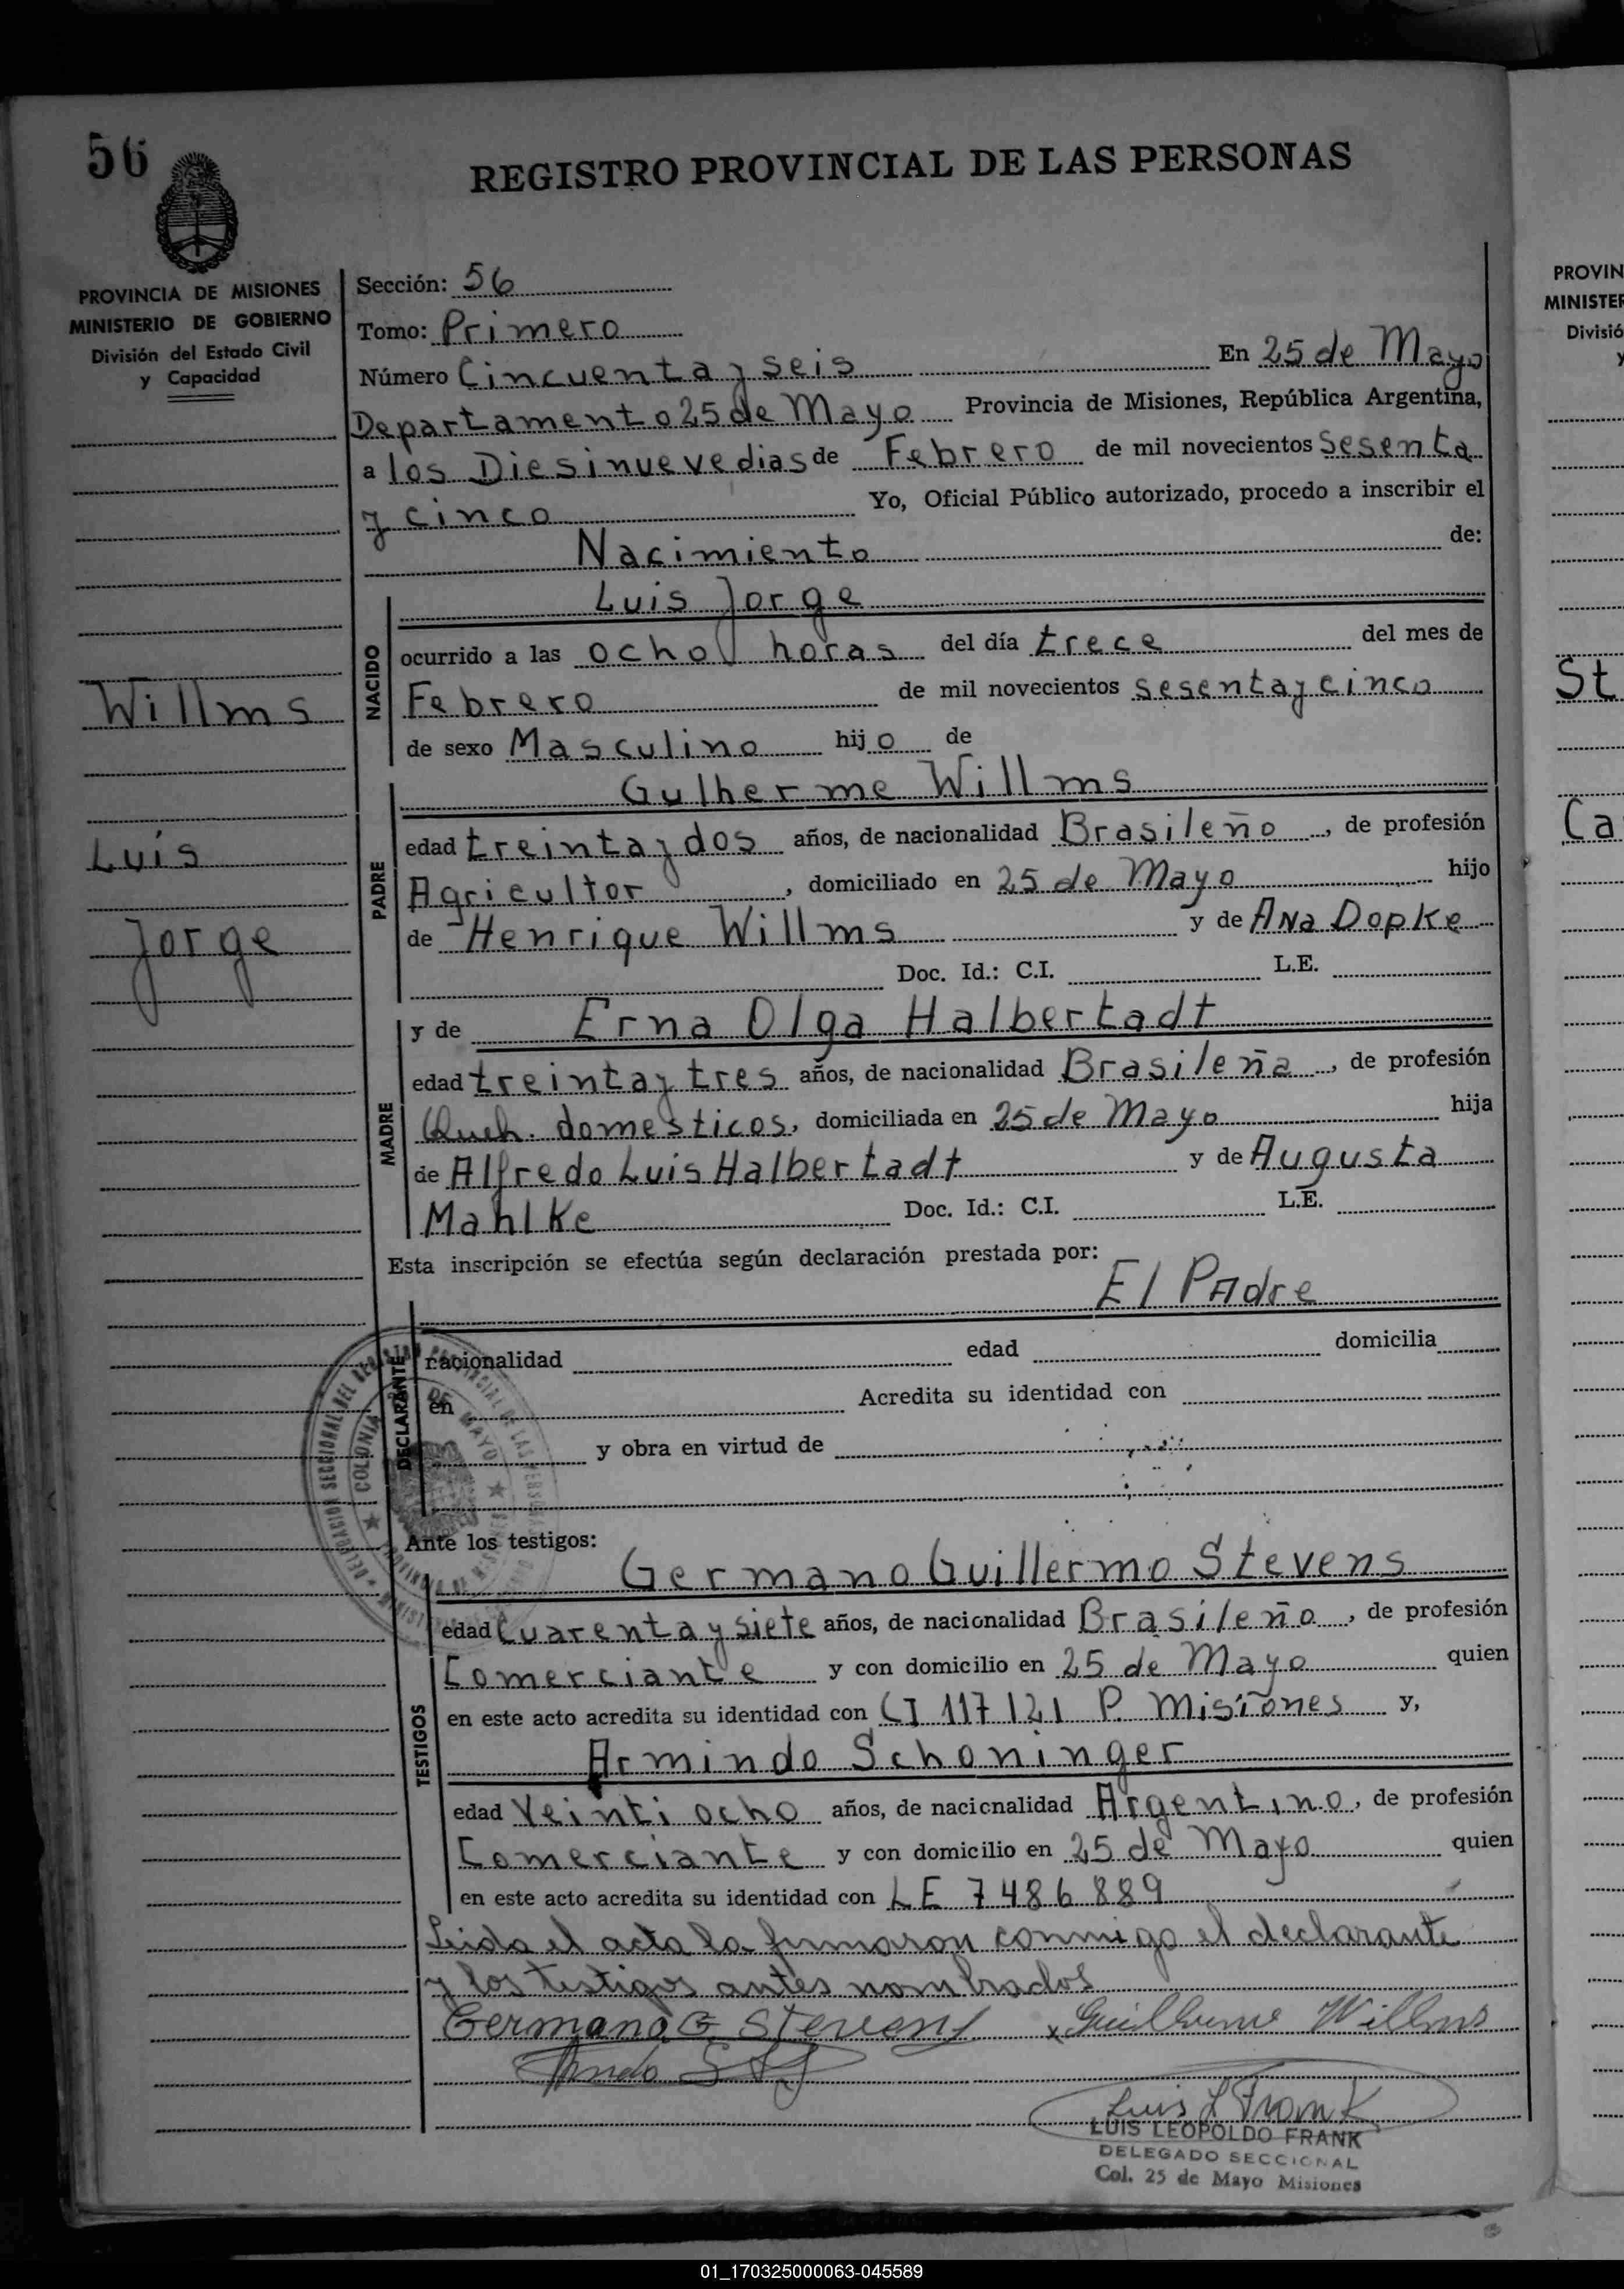 56
REGISTRO PROVINCIAL DE LAS PERSONAS
PROVINCIA DE MISIONES
MINISTERIO DE GOBIERNO
División del Estado Civil
y Capacidad
Sección: 56
Tomo: Primero
Número Cincuenta y seis En 25 de Mayo
Departamento 25 de Mayo Provincia de Misiones, República Argentina,
a los Diesinueve dias de Febrero de mil novecientos Sesenta
y cinco Yo, Oficial Público autorizado, procedo a inscribir el
Nacimiento de:
Luis Jorge
NACIDO
ocurrido a las ocho horas del día trece del mes de
Febrero de mil novecientos sesenta y cinco
de sexo Masculino hijo de
Willms
Luis
Jorge
Gulherme Willms
PADRE
edad treinta y dos años, de nacionalidad Brasileño, de profesión
Agricultor, domiciliado en 25 de Mayo hijo
de Henrique Willms y de Ana Dopke
Doc. Id.: C.I. L.E.
y de Erna Olga Halbertadt
MADRE
edad treinta y tres años, de nacionalidad Brasileña, de profesión
Queh. domesticos, domiciliada en 25 de Mayo hija
de Alfredo Luis Halbertadt y de Augusta
Mahlke Doc. Id.: C.I. L.E.
Esta inscripción se efectúa según declaración prestada por:
El Padre
DECLARANTE
nacionalidad edad domicilia
en Acredita su identidad con
y obra en virtud de
COLONIA 25 DE MAYO
Ante los testigos:
Germano Guillermo Stevens
TESTIGOS
edad Cuarenta y siete años, de nacionalidad Brasileño, de profesión
Comerciante y con domicilio en 25 de Mayo quien
en este acto acredita su identidad con CI 117121 P. Misiones y,
Armindo Schoninger
edad Veinti ocho años, de nacionalidad Argentino, de profesión
Comerciante y con domicilio en 25 de Mayo quien
en este acto acredita su identidad con LE 7486889
Leida el acta la firmaron conmigo el declarante
y los testigos antes nombrados
Germano G. Stevens x Guilherme Willms
Luis L Frank
LUIS LEOPOLDO FRANK
DELEGADO SECCIONAL
Col. 25 de Mayo Misiones
PROVIN
MINISTER
Divisió
y
St
Ca
01_170325000063-045589